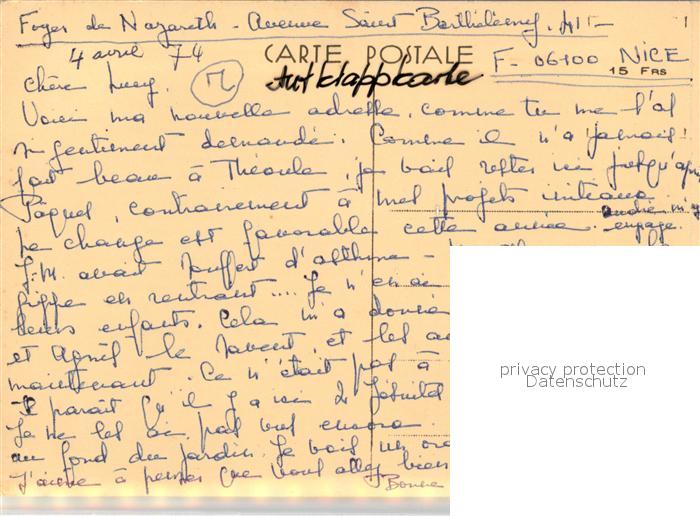 Foyer de Nazareth - Avenue Saint Barthélemy
4 avril 74 CARTE POSTALE F- 06100 NICE
15 FRS
Chère Lucy.
Voici ma nouvelle adresse, comme tu me l'as
si gentiment demandé. Comme il n'a jamais
fait beau à Théoule, je vais rester ici jusqu'après
Pâques, contrairement à mes projets initiaux
Le change est favorable cette année.
engage.
J.M. avait souffert d'asthme
grippe en rentrant.... Je n'en ai
leurs enfants. Cela m'a donné
et Agnès le savent et les
maintenant. Ce n'était pas à
Il paraît qu'il y a ici 2 Jésuites
Je ne les ai pas vus encore.
au fond du jardin. Je vais
J'aime à penser que vous allez bien
Bonne
privacy protection
Datenschutz